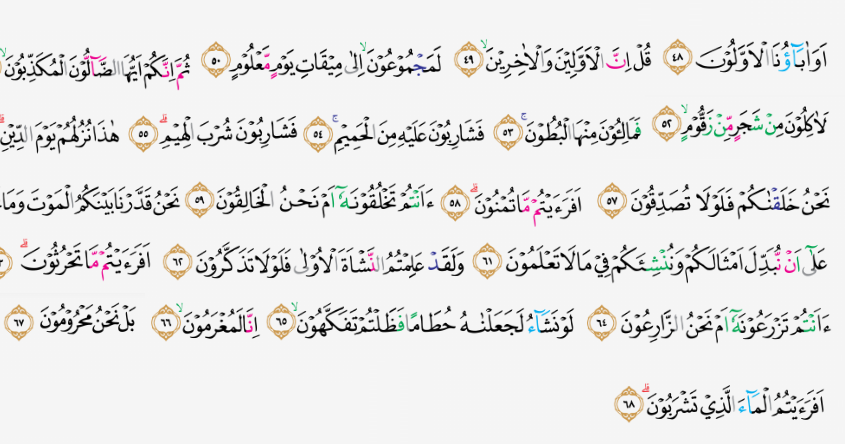 اَوَاٰبَاۤؤُنَا الْاَوَّلُوْنَ ٤٨ قُلْ اِنَّ الْاَوَّلِيْنَ وَالْاٰخِرِيْنَۙ ٤٩ لَمَجْمُوْعُوْنَۙ اِلٰى مِيْقَاتِ يَوْمٍ مَّعْلُوْمٍ ٥٠ ثُمَّ اِنَّكُمْ اَيُّهَا الضَّاۤلُّوْنَ الْمُكَذِّبُوْنَۙ
لَاٰكِلُوْنَ مِنْ شَجَرٍ مِّنْ زَقُّوْمٍۙ ٥٢ فَمَالِـُٔوْنَ مِنْهَا الْبُطُوْنَۚ ٥٣ فَشَارِبُوْنَ عَلَيْهِ مِنَ الْحَمِيْمِۚ ٥٤ فَشَارِبُوْنَ شُرْبَ الْهِيْمِۗ ٥٥ هٰذَا نُزُلُهُمْ يَوْمَ الدِّيْنِۗ
نَحْنُ خَلَقْنٰكُمْ فَلَوْلَا تُصَدِّقُوْنَ ٥٧ اَفَرَءَيْتُمْ مَّا تُمْنُوْنَۗ ٥٨ ءَاَنْتُمْ تَخْلُقُوْنَهٗٓ اَمْ نَحْنُ الْخَالِقُوْنَ ٥٩ نَحْنُ قَدَّرْنَا بَيْنَكُمُ الْمَوْتَ وَمَا
عَلٰٓى اَنْ نُّبَدِّلَ اَمْثَالَكُمْ وَنُنْشِئَكُمْ فِيْ مَا لَا تَعْلَمُوْنَ ٦١ وَلَقَدْ عَلِمْتُمُ النَّشْاَةَ الْاُوْلٰى فَلَوْلَا تَذَكَّرُوْنَ ٦٢ اَفَرَءَيْتُمْ مَّا تَحْرُثُوْنَۗ
ءَاَنْتُمْ تَزْرَعُوْنَهٗٓ اَمْ نَحْنُ الزَّارِعُوْنَ ٦٤ لَوْ نَشَاۤءُ لَجَعَلْنٰهُ حُطَامًا فَظَلْتُمْ تَفَكَّهُوْنَۙ ٦٥ اِنَّا لَمُغْرَمُوْنَۙ ٦٦ بَلْ نَحْنُ مَحْرُوْمُوْنَ ٦٧
اَفَرَءَيْتُمُ الْمَاۤءَ الَّذِيْ تَشْرَبُوْنَۗ ٦٨